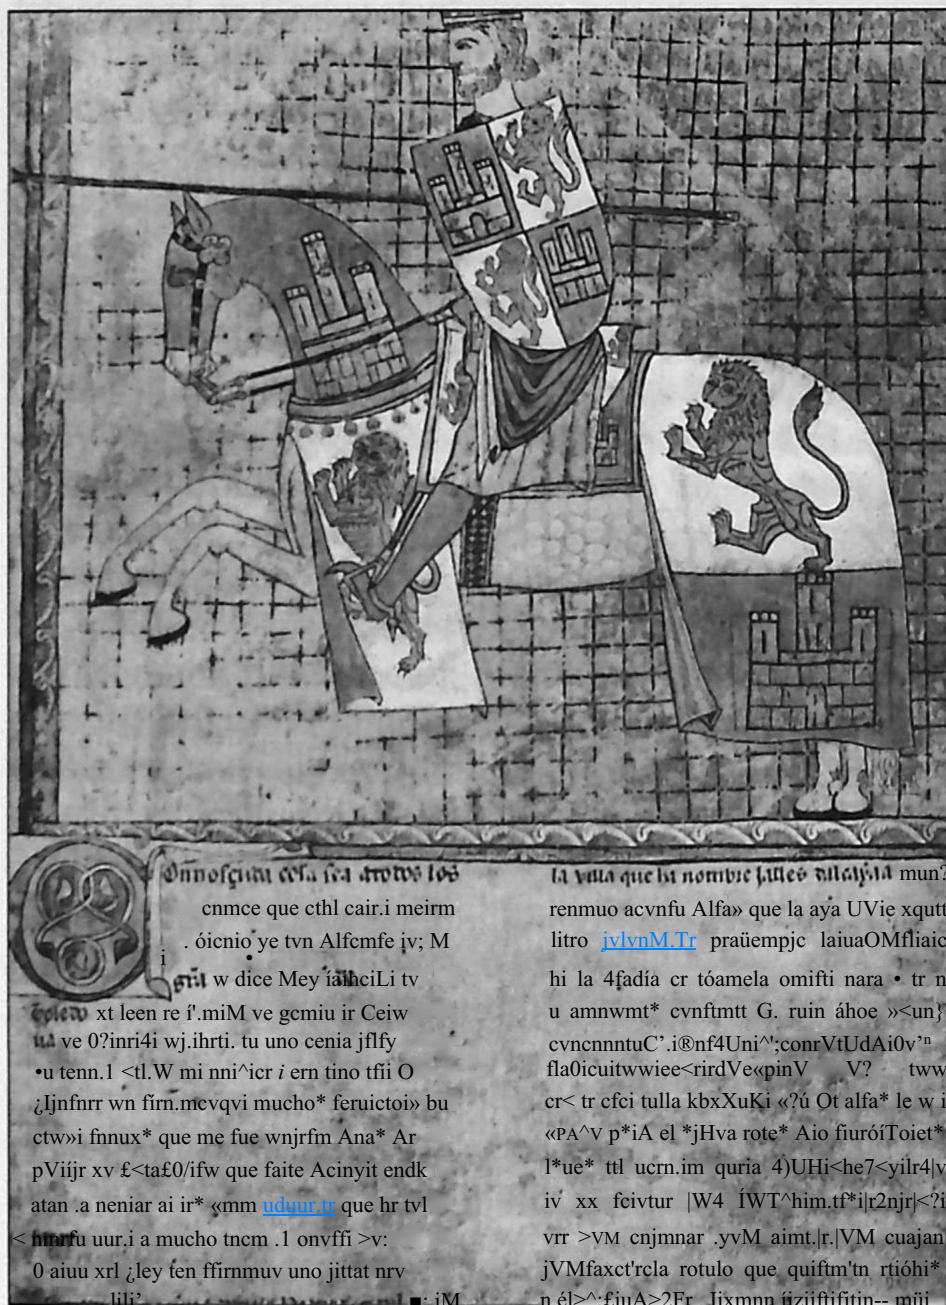 Onnosçuda cosa sea atodos los
cnmce que cthl cair.i meirm
. óicnio ye tvn Alfcmfe iv; M
i
gra w dice Mey iailhciLi tv
toledo xt leen re í'.miM ve gcmiu ir Ceiw
ua ve 0?inri4i wj.ihrti. tu uno cenia jflfy
•u tenn.1 <tl.W mi nni^icr i ern tino tfii O
¿Ijnfnrr wn firn.mcvqvi mucho* feruictoi» bu
ctw»i fnnux* que me fue wnjrfm Ana* Ar
pVíijr xv £<ta£0/ifw que faite Acinyit endk
atan .a neniar ai ir* «mm uduur.tr que hr tvl
< nmrfu uur.i a mucho tncm .1 onvffi >v:
0 aiuu xrl ¿ley ten ffirnmuv uno jittat nrv
lili’ ■: iM
la villa que ha nombre mun?
renmuo acvnfu Alfa» que la aya UVie xqutt
litro jvlvnM.Tr praüempjc laiuaOMfliaic
hi la 4fadía cr tóamela omifti nara • tr n
u amnwmt* cvnftmtt G. ruin áhoe »<un}
cvncnnntuC’.i®nf4Uni^';conrVtUdAi0v’ⁿ
fla0icuitwwiee<rirdVe«pinV V? tww
cr< tr cfci tulla kbxXuKi «?ú Ot alfa* le w i
«PA^V p*iA el *jHva rote* Aio fiuróíToiet*
l*ue* ttl ucrn.im quria 4)UHi<he7<yilr4|v
iv xx fcivtur |W4 ÍWT^him.tf*i|r2njr|<?i
vrr >VM cnjmnar .yvM aimt.|r.|VM cuajan
jVMfaxct'rcla rotulo que quiftm'tn rtióhi*